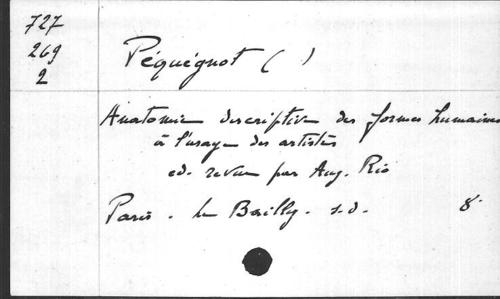 727
269
2
Péquégnot ( )
Anatomie descriptive des formes humaines
à l'usage des artistes
ed. revue par Aug. Rio
Paris. Le Bailly. s.d. 8°